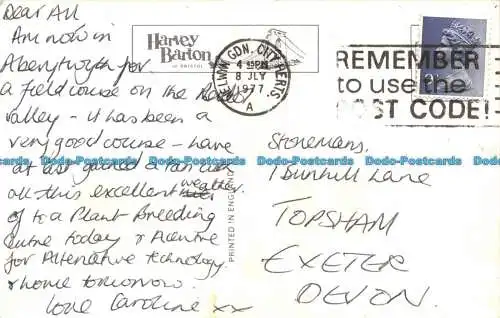 Dear All
Am now in
Aberystwyth for
a field course on the
valley - it has been a
very good course - have
at last gained a tan in
all this excellent weather.
off to a Plant Breeding
Centre today & a Centre
for Alternative Technology
& home tomorrow.
Love Caroline xx
Harvey
Barton
of BRISTOL
WELWYN GDN. CITY, HERTS.
8 JLY
1977
A
REMEMBER
to use the
POST CODE!
PRINTED IN ENGLAND
Stonemans,
1 Bunhill Lane
TOPSHAM
EXETER
DEVON.
Do-Postcards Do-Postcards Do-Postcards Do-Postcards Do-Postcards